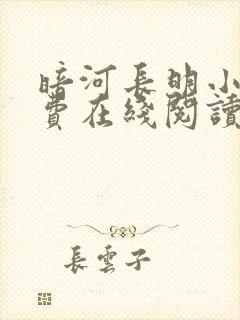 暗河長明小
費在綫閱讀
長雲子